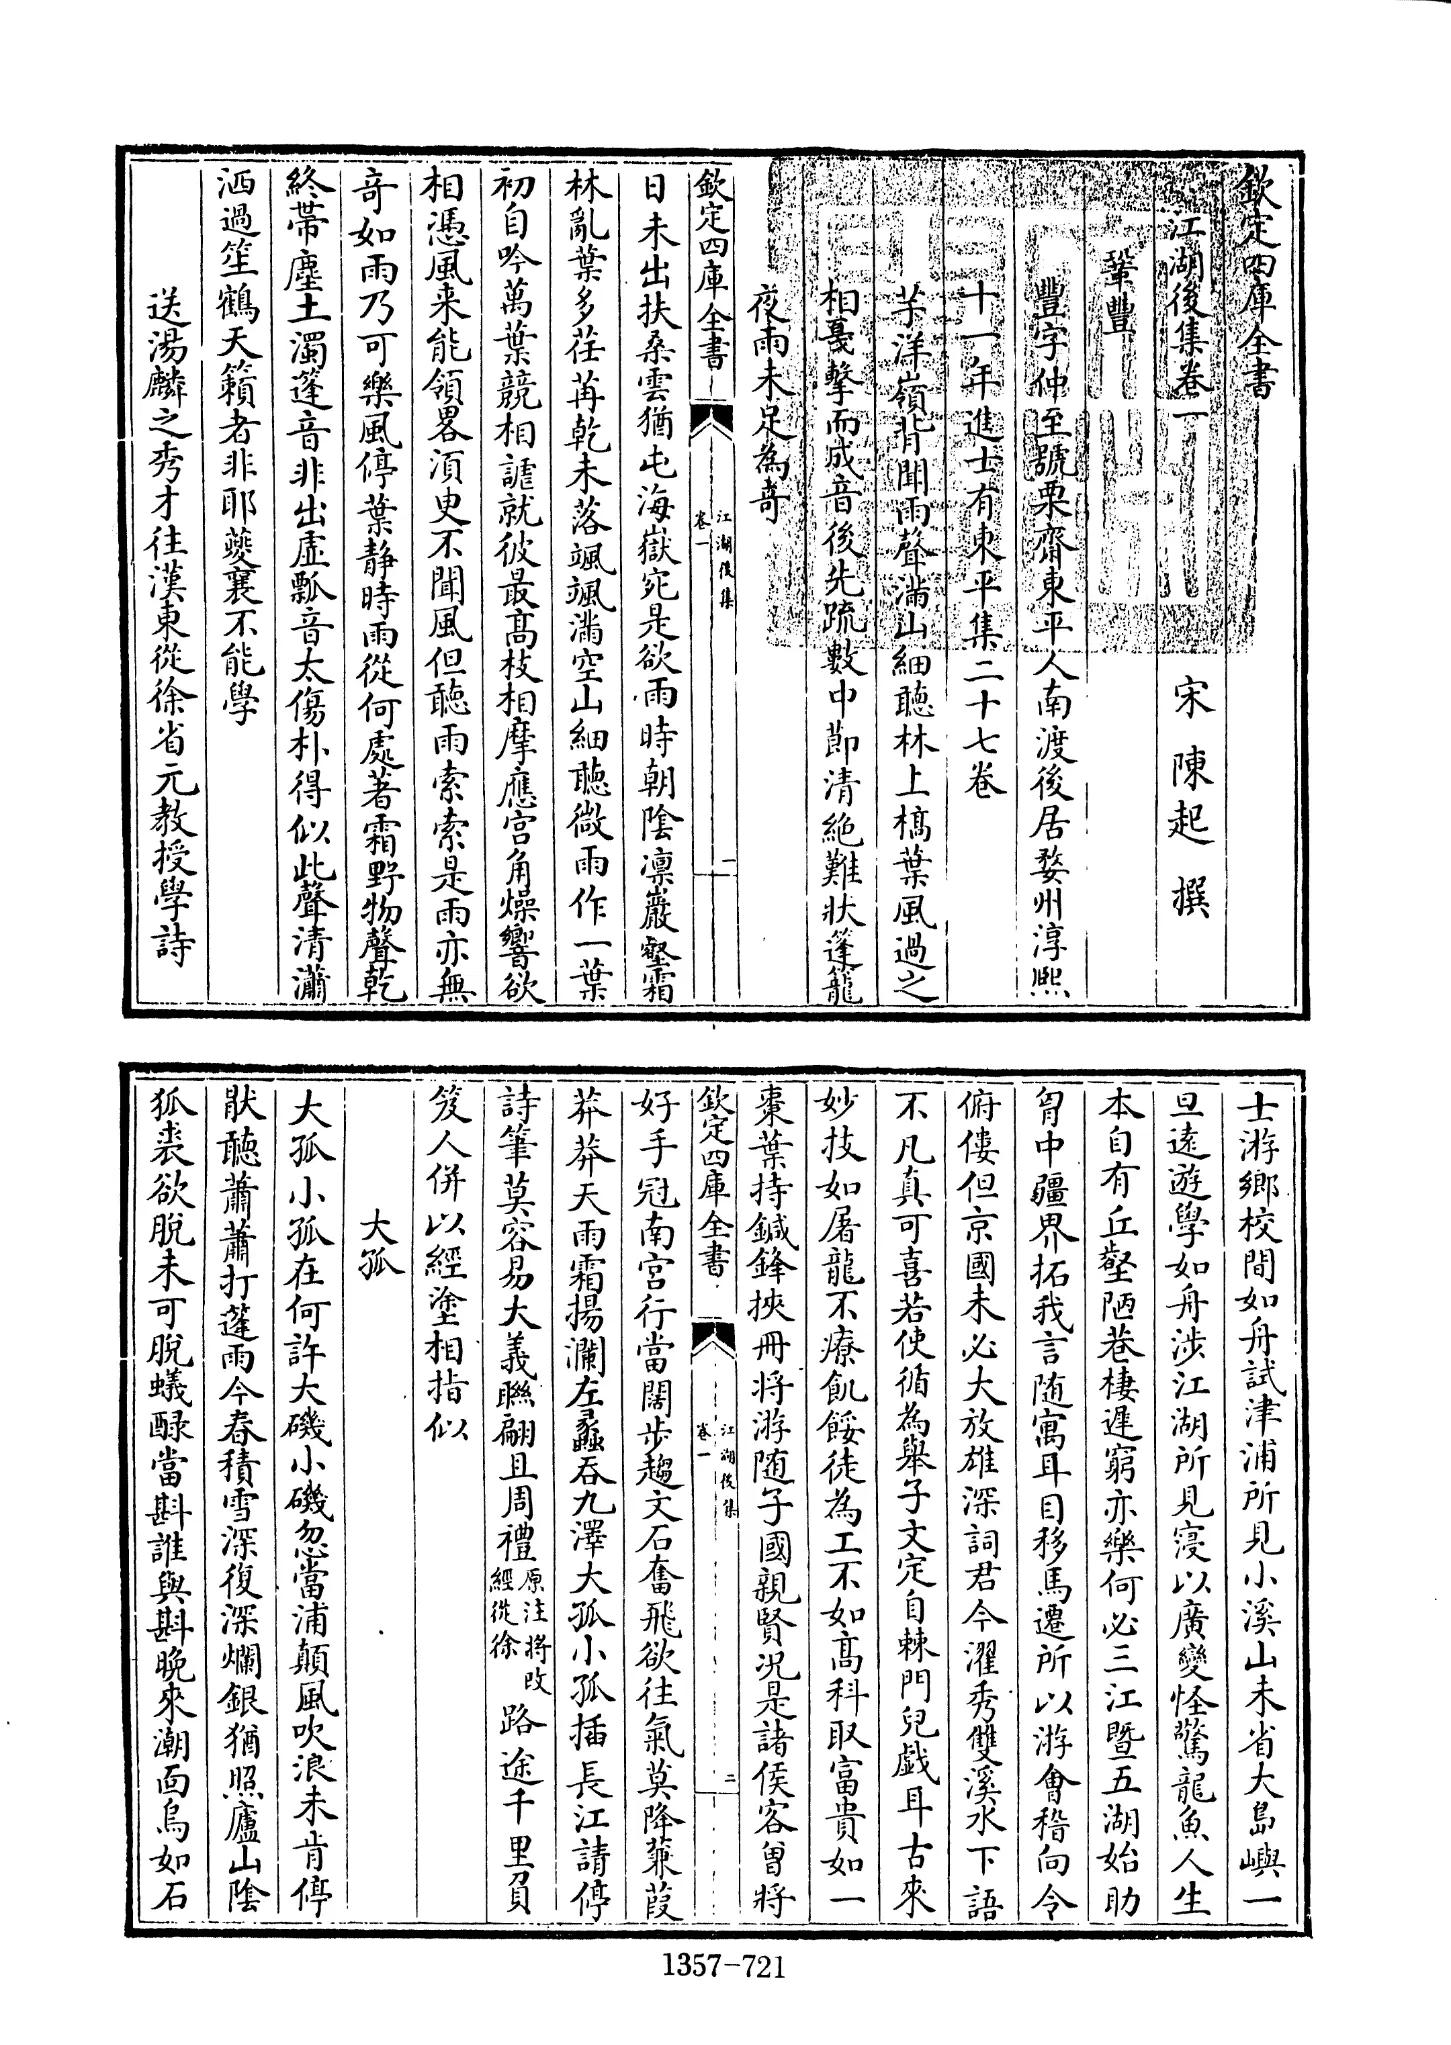 欽定四庫全書
江湖後集卷一
宋 陳起 撰
鞏豐
豐字仲至號栗齋東平人南渡後居婺州淳熙
十一年進士有東平集二十七卷
芋洋嶺背聞雨聲滿山細聽林上槁葉風過之
相戞擊而成音後先疏數中節清絶難狀篷籠
夜雨未足為奇
欽定四庫全書
江湖後集
卷一
一
日未出扶桑雲猶屯海嶽宛是欲雨時朝陰凛巖壑霜
林亂葉多荏苒乾未落颯颯滿空山細聽微雨作一葉
初自吟萬葉競相謔就彼最高枝相摩應宫角燥響欲
相憑風来能領畧須臾不聞風但聽雨索索是雨亦無
奇如雨乃可樂風停葉静時雨從何處著霜野物聲乾
終帶塵土濁篷音非出虚瓢音太傷朴得似此聲清瀟
洒過笙鶴天籟者非耶夔襄不能學
送湯麟之秀才往漢東從徐省元教授學詩
士游鄉校間如舟試津浦所見小溪山未省大島嶼一
旦遠遊學如舟涉江湖所見寖以廣變怪驚龍魚人生
本自有丘壑陋巷棲遲窮亦樂何必三江暨五湖始助
胷中疆界拓我言随寓耳目移馬遷所以游會稽向令
俯僂但京國未必大放雄深詞君今濯秀雙溪水下語
不凡真可喜若使循為舉子文定自棘門兒戯耳古來
妙技如屠龍不療飢餒徒為工不如高科取富貴如一
棗葉持鍼鋒挾冊将游随子國親賢况是諸侯客曾將
欽定四庫全書
江湖後集
卷一
二
好手冠南宫行當闊步趨文石奮飛欲往氣莫降蒹葭
莽莽天雨霜揚瀾左蠡吞九澤大孤小孤插長江請停
詩筆莫容易大義聯翩且周禮原注將改經從徐路途千里負
笈人併以經塗相指似
大孤
大孤小孤在何許大磯小磯忽當浦顛風吹浪未肯停
猒聽蕭蕭打蓬雨今春積雪深復深爛銀猶照廬山陰
狐裘欲脫未可脫蟻醁當斟誰與斟晚來潮面烏如石
1357-721